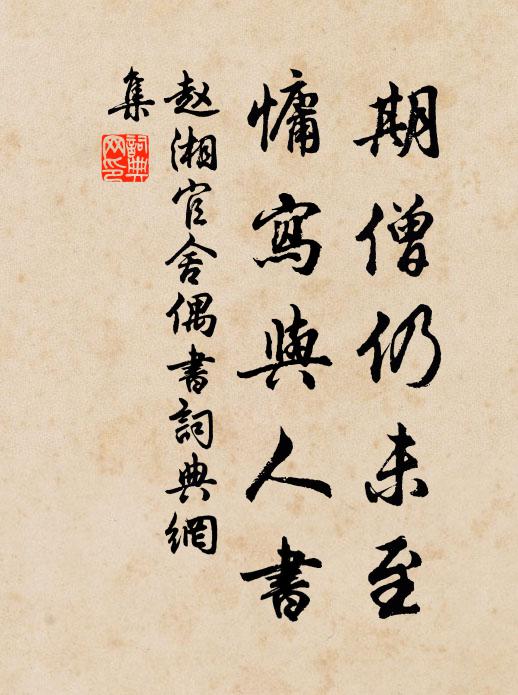 期僧仍未至
慵寫與人書
赵湘官舍偶書詞典網
集
詞典網印